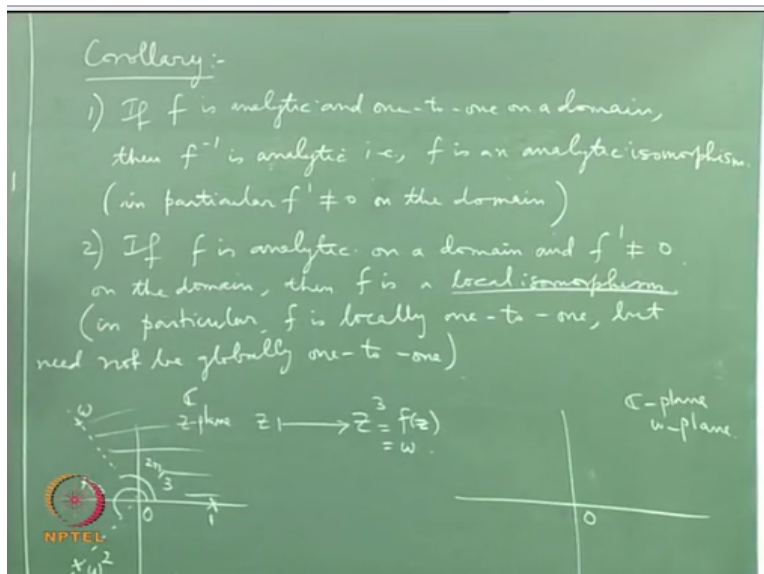 Corollary:-
1) If f is analytic and one-to-one on a domain,
then f⁻¹ is analytic i.e, f is an analytic isomorphism.
(in particular f' ≠ 0 on the domain)
2) If f is analytic on a domain and f' ≠ 0
on the domain, then f is a local isomorphism
(in particular, f is locally one-to-one, but
need not be globally one-to-one)
ω
ℂ
z-plane
z ↦ z³ = f(z)
= w
ℂ-plane
w-plane.
2π/3
0
1
0
ω²
NPTEL